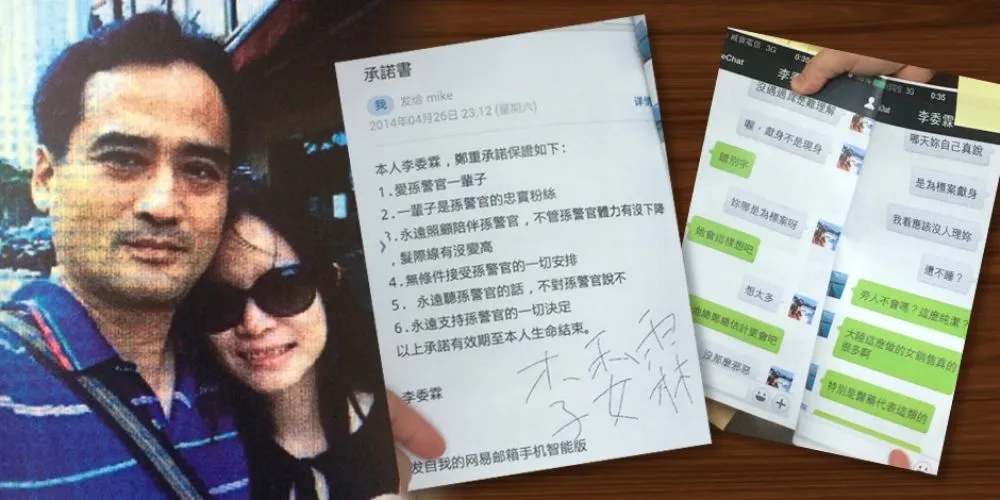 承諾書
我 发给 mike
2014年04月26日 23:12 (星期六)
详情
本人李委霖，鄭重承諾保證如下：
1.愛孫警官一輩子
2.一輩子是孫警官的忠實粉絲
3.永遠照顧陪伴孫警官，不管孫警官體力有沒下降
，髮際線有沒變高
4.無條件接受孫警官的一切安排
5. 永遠聽孫警官的話，不對孫警官說不
6.永遠支持孫警官的一切決定
以上承諾有效期至本人生命結束。
李委霖
李委霖
发自我的网易邮箱手机智能版
3G 0:35
eChat
李委
沒遇過真是難理解
喔，獻身不是現身
錯別字
妳際是為標案呀
她會這樣想吧
想太多
他總鄭嚇估計更會吧
沒那麼邪惡
3G 0:35
李委霖
哪天妳自己真說
是為標案獻身
我看應該沒人理妳
還不睡？
旁人不會嗎？這麼純潔？
大陸這麼做的女銷售真的
很多啊
特別是醫藥代表這類的